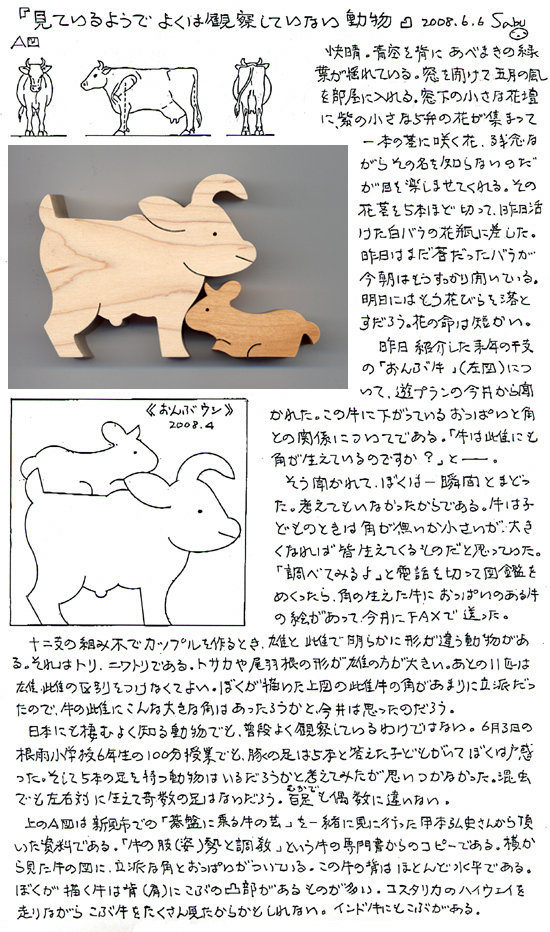 『見ているようで よくは観察していない 動物』 2008.6.6 Sabu
A図
快晴。青空を背に あべまきの緑
葉が揺れている。窓を開けて五月の風
を部屋に入れる。窓下の小さな花壇
に紫の小さな5弁の花が集まって
一本の茎に咲く花、残念な
がらその名を知らないのだ
が目を楽しませてくれる。その
花茎を5本ほど切って、昨日活
けた白バラの花瓶に差した。
昨日はまだ蕾だったバラが
今朝はもうすっかり開いている。
明日にはもう花びらを落と
すだろう。花の命は短かい。
昨日紹介した来年の干支
の「おんぶ牛」(左図)につ
いて、遊プランの今井から聞
かれた。この牛に下がっているおっぱいと角
との関係についてである。「牛は雌にも
角が生えているのですか?」と――。
そう聞かれて、ぼくは一瞬間とまどっ
た。考えてもいなかったからである。牛は子
どものときは角が無いか小さいが、大き
くなれば皆生えてくるものだと思っていた。
「調べてみるよ」と電話を切って図鑑を
めくったら、角の生えた牛におっぱいのある牛
の絵があって、今井にFAXで送った。
《おんぶウシ》
2008.4
十二支の組み木でカップルを作るとき、雄と雌で明らかに形が違う動物があ
る。それはトリ、ニワトリである。トサカや尾羽根の形が雄の方が大きい。あとの11匹は
雄、雌の区別をつけなくてよい。ぼくが描いた上図の雌牛の角があまりに立派だっ
たので、牛の雌にこんな大きな角はあったろうかと、今井は思ったのだろう。
日本にも棲むよく知る動物でも、普段よく観察しているわけではない。6月3日の
根雨小学校6年生の100分授業でも、豚の足は5本と答えた子どもがいてぼくは戸惑
った。そして5本の足を持つ動物はいるだろうかと考えてみたが思いつかなかった。混虫
でも左右対に生えて奇数の足はないだろう。百足(むかで)も偶数に違いない。
上のA図は新見市での「碁盤に乗る牛の芸」を一緒に見に行った甲本弘史さんから頂
いた資料である。「牛の肢(姿)勢と調教」という牛の専門書からのコピーである。横か
ら見た牛の図に、立派な角とおっぱいがついている。この牛の背はほとんど水平である。
ぼくが描く牛は背(肩)にこぶの凸部があるものが多い。コスタリカのハイウェイを
走りながらこぶ牛をたくさん見たからかもしれない。インド牛にもこぶがある。